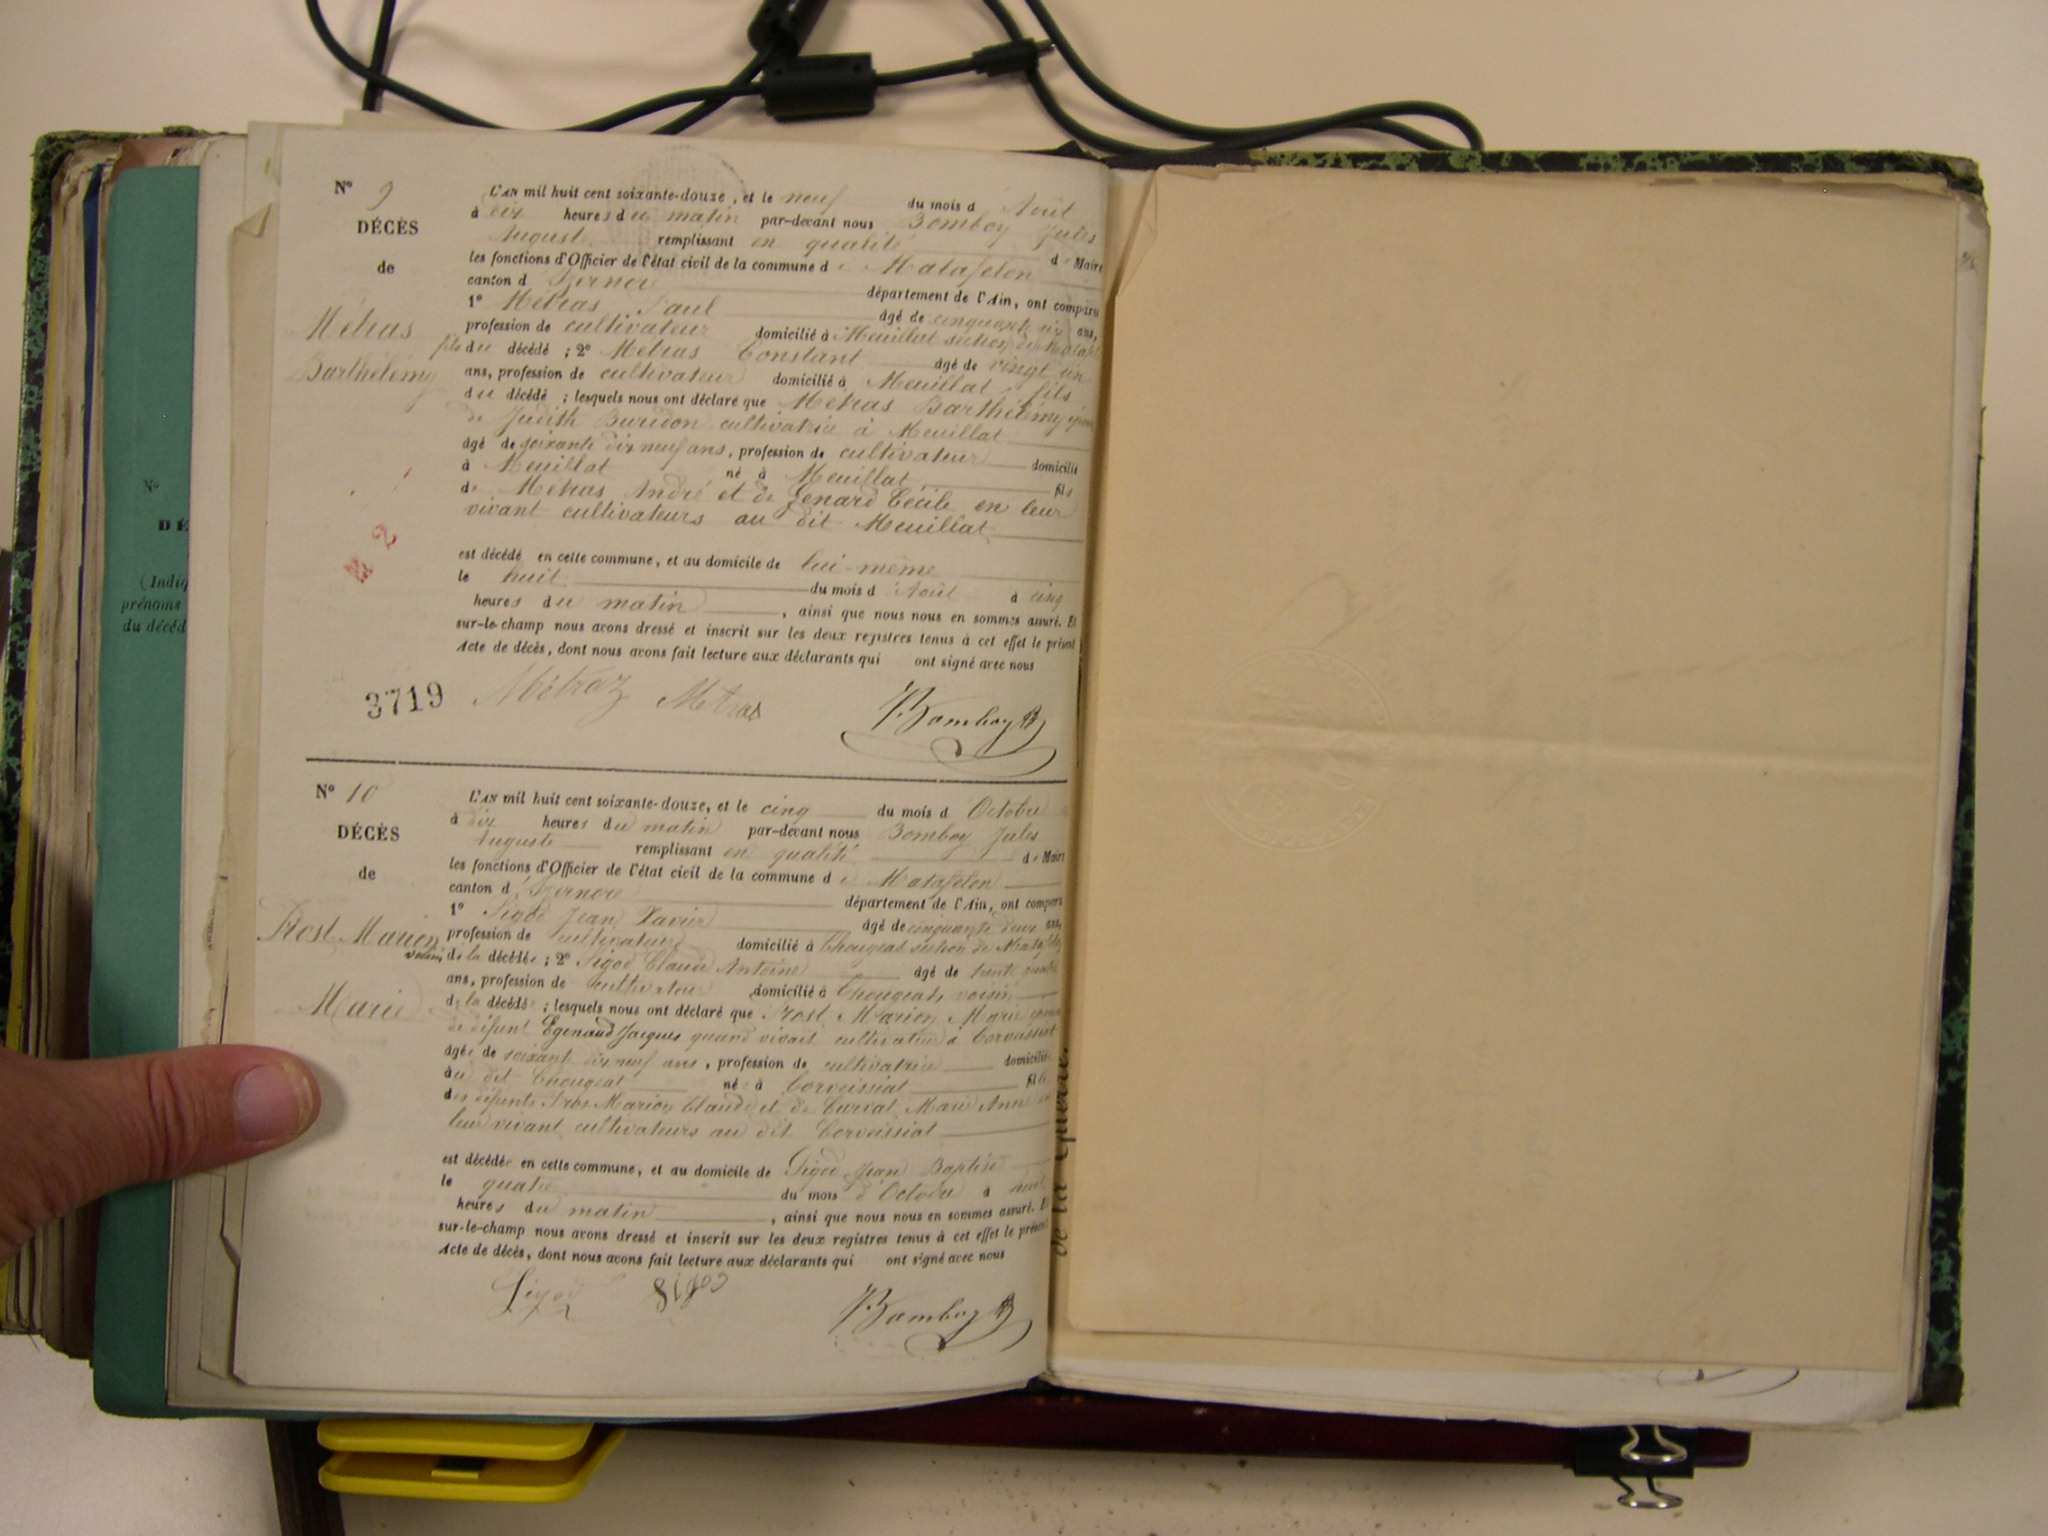 N° 9
DÉCÈS
de
Métras
Barthélemy
L'AN mil huit cent soixante-douze, et le neuf du mois d'Août
à dix heures du matin par-devant nous Bomboy Jules
August remplissant en qualité de Maire
les fonctions d'Officier de l'état civil de la commune de Matafelon
canton d'Izernore département de l'Ain, ont comparu
1° Métras Paul âgé de cinquante six ans,
profession de cultivateur domicilié à Meuillat section de Mataf
fils du décédé ; 2° Métras Constant âgé de vingt un
ans, profession de cultivateur domicilié à Meuillat fils
du décédé ; lesquels nous ont déclaré que Métras Barthélemy époux
de Judith Buridon cultivatrice à Meuillat
âgé de soixante dix neuf ans, profession de cultivateur domicilié
à Meuillat né à Meuillat fils
de Métras André et de Genard Cécile en leur
vivant cultivateurs au dit Meuillat
est décédé en cette commune, et au domicile de lui-même
le huit du mois d'Août à cinq
heures du matin, ainsi que nous nous en sommes assuré. Et
sur-le-champ nous avons dressé et inscrit sur les deux registres tenus à cet effet le présent
Acte de décès, dont nous avons fait lecture aux déclarants qui ont signé avec nous
3719 Métraz Metras Bomboy
N° 10
DÉCÈS
de
Prost Marion
Marie
L'AN mil huit cent soixante-douze, et le cinq du mois d'Octobre
à dix heures du matin par-devant nous Bomboy Jules
Auguste remplissant en qualité de Maire
les fonctions d'Officier de l'état civil de la commune de Matafelon
canton d'Izernore département de l'Ain, ont comparu
1° Sigod Jean Xavier âgé de cinquante deux ans,
profession de cultivateur domicilié à Chougeat section de Matafelon
voisin de la décédée ; 2° Sigod Claude Antoine âgé de trente quatre
ans, profession de cultivateur domicilié à Chougeat, voisin
de la décédée ; lesquels nous ont déclaré que Prost Marion Marie épouse
de défunt Egenaud Jacques quand vivait cultivateur à Corveissiat
âgée de soixante dix neuf ans, profession de cultivatrice domiciliée
au dit Chougeat née à Corveissiat fille
des défunts Pros Marion Claude et de Curvat Marie Anne en
leur vivant cultivateurs au dit Corveissiat
est décédée en cette commune, et au domicile de Sigod Jean Baptiste
le quatre du mois d'Octobre à
heures du matin, ainsi que nous nous en sommes assuré. Et
sur-le-champ nous avons dressé et inscrit sur les deux registres tenus à cet effet le présent
Acte de décès, dont nous avons fait lecture aux déclarants qui ont signé avec nous
Sigod Sigod Bomboy
N°
DÉ
(Indiq
prénoms
du décéd
de la Guerre.